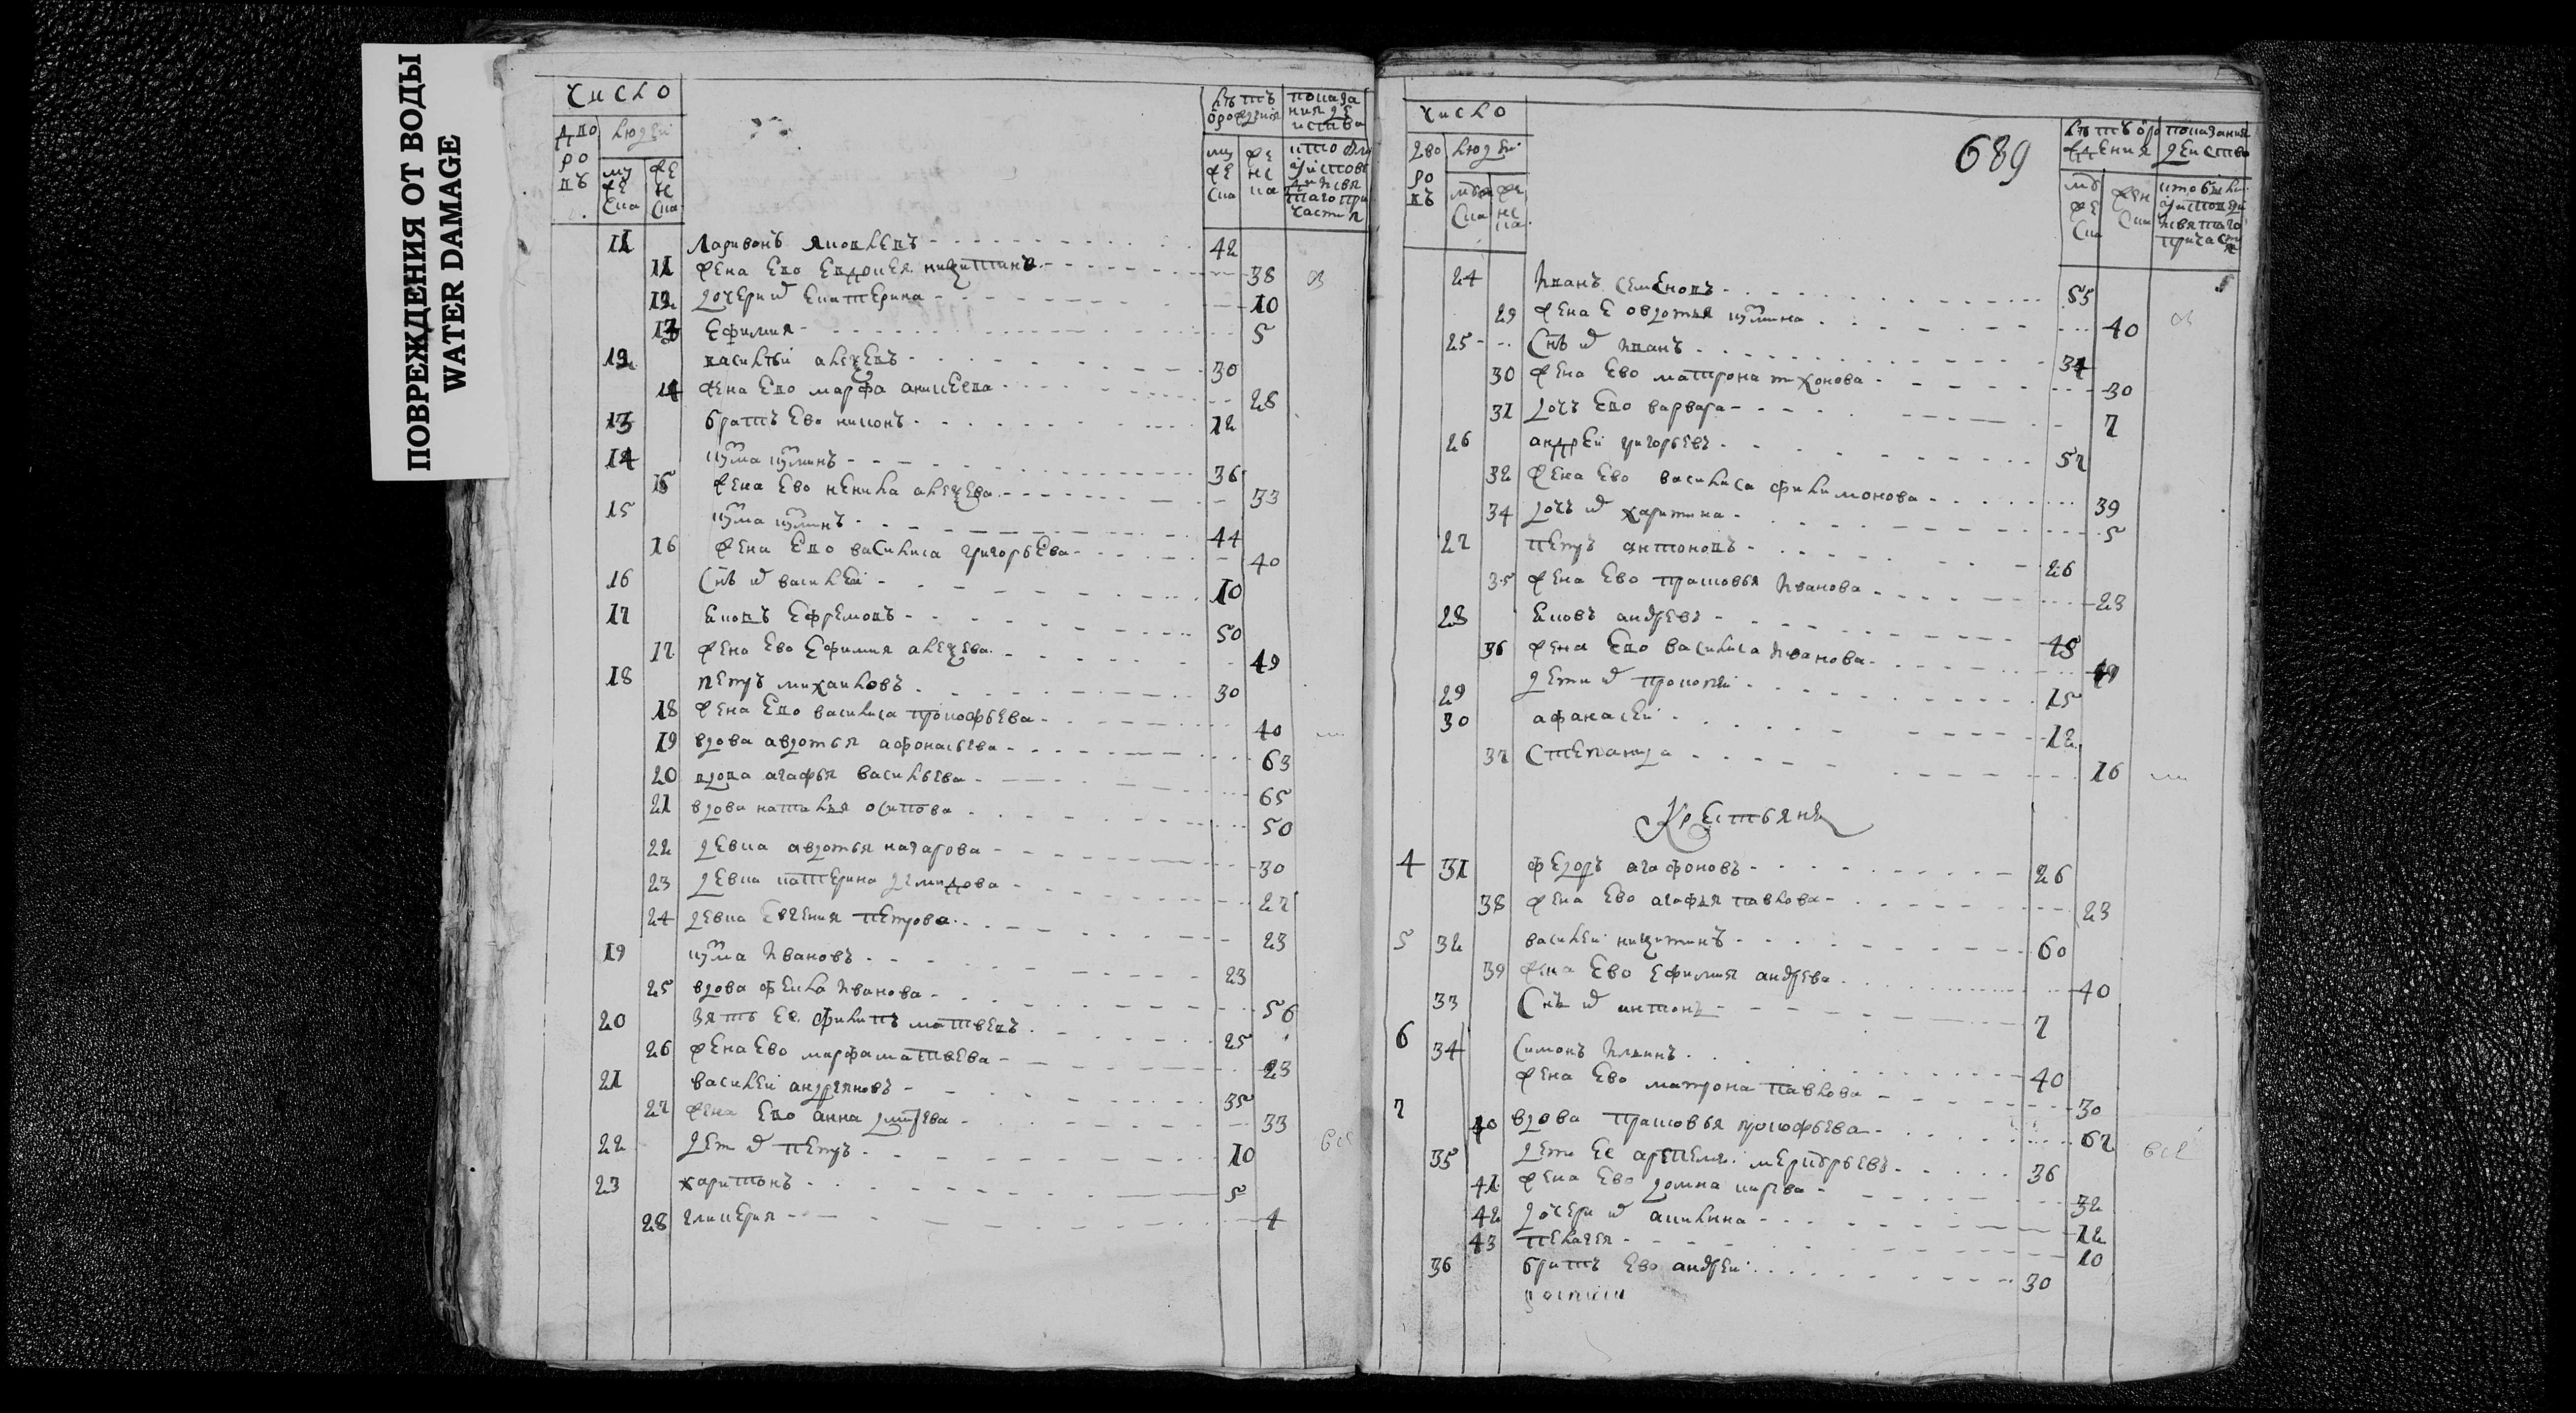 ПОВРЕЖДЕНИЯ ОТ ВОДЫ
WATER DAMAGE
число
дво ро въ
людей
му же ска
же нс ка
лѣтъ о рожденія
показа ния де иства
му же ска
же нс ка
11 Ларивонъ яковлевъ 42
11 жена ево евдокея никитина 38
12 дочери и екатерина 10
13 Ефимия 5
12 василѣй алеѯевъ 30
14 жена ево марфа аникеева 28
13 братъ ево никонъ 12
14 кузма кузминъ 36
15 жена ево ненила алеѯева 33
15 кузма кузминъ 44
16 жена ево василиса григорьева 40
16 Снъ и василей 10
17 Яковъ Ефремовъ 50
17 жена ево Ефимия алеѯева 49
18 петръ михаиловъ 30
18 жена ево василиса прокофьева 40
19 вдова авдотья афонасьева 63
20 вдова агафья васильева 65
21 вдова наталья осипова 50
22 девка авдотья назарова 30
23 девка катерина демидова 27
24 девка евгения петрова 23
19 кузма Ивановъ 23
25 вдова фекла Иванова 56
20 зять ее филипъ матвевъ 25
26 жена ево марфа матвева 23
21 василей андреяновъ 35
27 жена ево анна дмитрева 33
22 дети и петръ 10
23 харитонъ 5
28 гликерия 4
689
число
дво ро въ
людей
24 Иванъ Семеновъ 55
29 жена е овдотья кузмина 40
25 Снъ и Иванъ 34
30 жена ево матрона тихонова 30
31 дочь ево варвара 7
26 андрей григорьевъ 57
32 жена ево василиса филимонова 39
34 дочь и харитина 5
27 петръ антоновъ 26
35 жена ево прасковья Иванова 23
28 Яковъ андревъ 48
36 жена ево василиса Иванова 49
29 дети и прокопей 15
30 афанасей 12
37 Степанида 16
Крестьяне
4 31 федоръ агафоновъ 26
38 жена ево агафья павлова 23
5 32 василей никитинъ 60
39 жена ево Ефимия андрева 40
33 Снъ и антонъ 7
6 34 Симонъ Ильинъ 40
жена ево матрона павлова 30
7 40 вдова прасковья прокофьева 67
35 дети ее артемей меркурьевъ 36
41 жена ево домна карпова 32
42 дочери и акилина 12
43 пелагея 10
36 братъ ево андрей 30